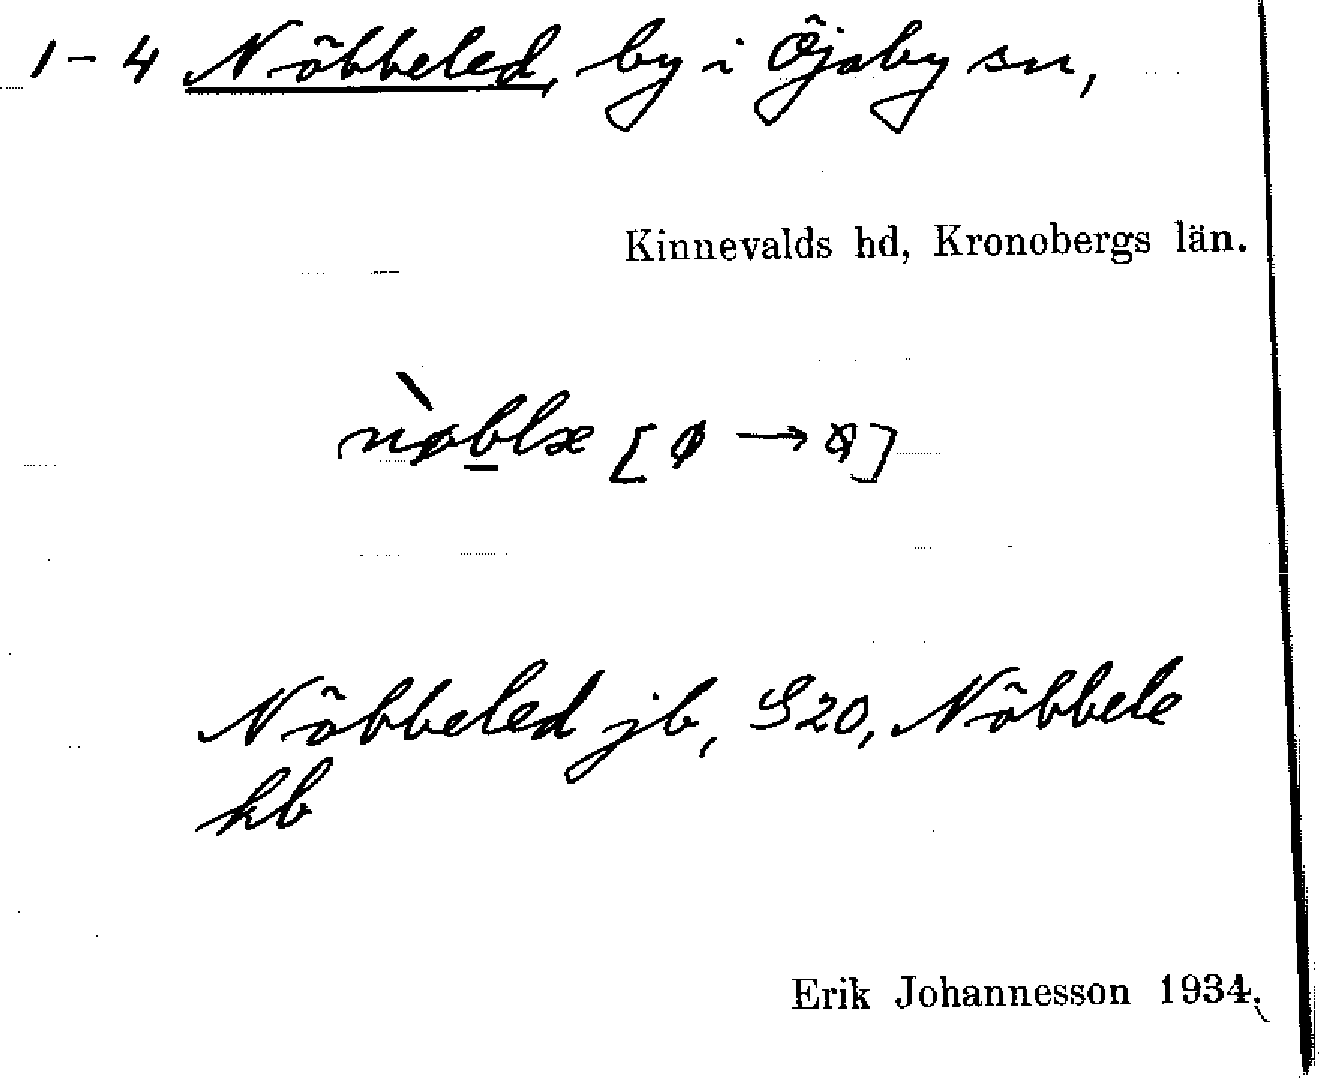 1-4 Nöbbeled, by i Öjaby sn,
Kinnevalds hd, Kronobergs län.
nø̀b̲læ [ø → ]
Nöbbeled jb, S20, Nöbbele
kb
Erik Johannesson 1934.